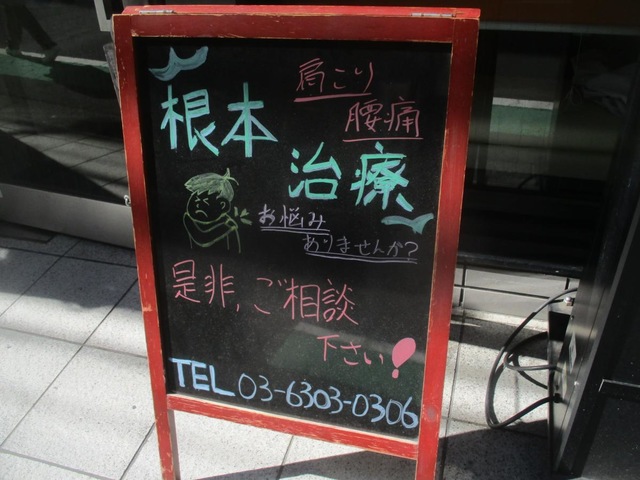 肩こり
腰痛
根本
治療
お悩み
ありませんか?
是非、ご相談
下さい!
TEL 03-6303-0306